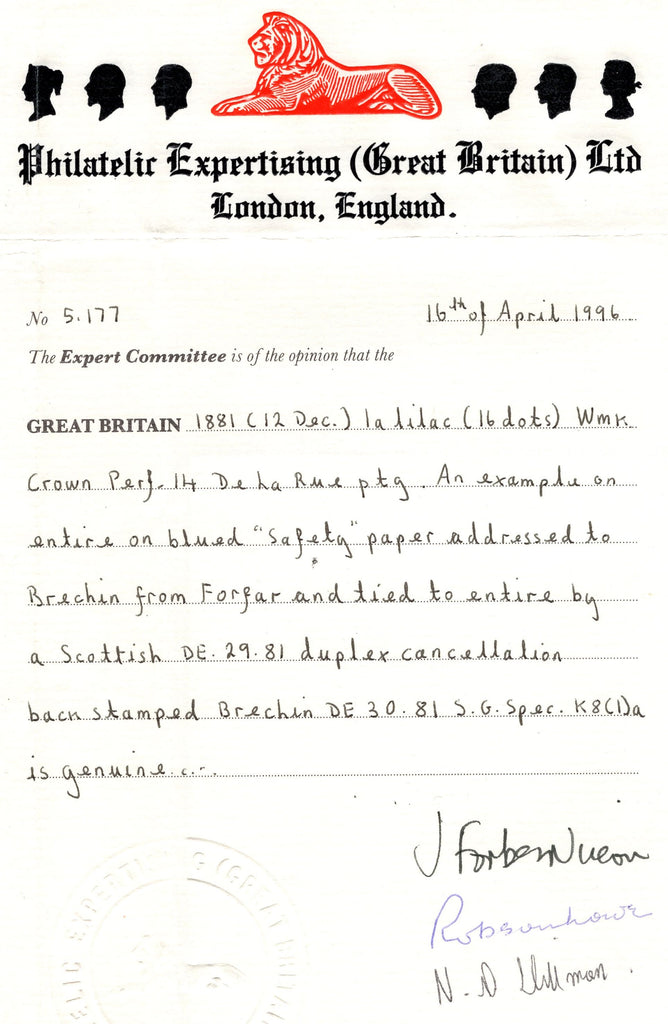 Philatelic Expertising (Great Britain) Ltd
London, England.
No 5.177 16th of April 1996
The Expert Committee is of the opinion that the
GREAT BRITAIN 1881 (12 Dec.) 1a lilac (16 dots) Wmk
Crown Perf. 14 De La Rue ptg. An example on
entire on blued "Safety" paper addressed to
Brechin from Forfar and tied to entire by
a Scottish DE. 29. 81 duplex cancellation
back stamped Brechin DE 30. 81 S.G. Spec. K8(1)a
is genuine...
J Forbes Nixon
N. D Hillman.